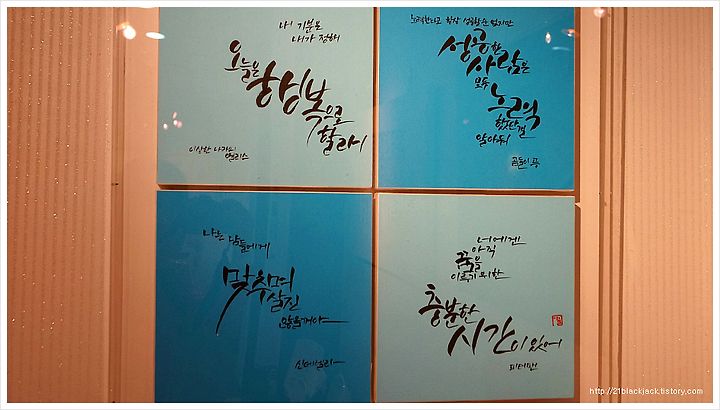 내 기분은
내가 정해
오늘은
행복으로
할래
이상한 나라의
앨리스
노력한다고 항상 성공할 순 없지만
성공한
사람은
모두
노력
했단걸
알아둬
곰돌이 푸
나는 남들에게
맞추며
살진
않을꺼야
신데렐라
너에겐
아직
꿈을
이루기 위한
충분한
시간이 있어
피터팬
http://21blackjack.tistory.com